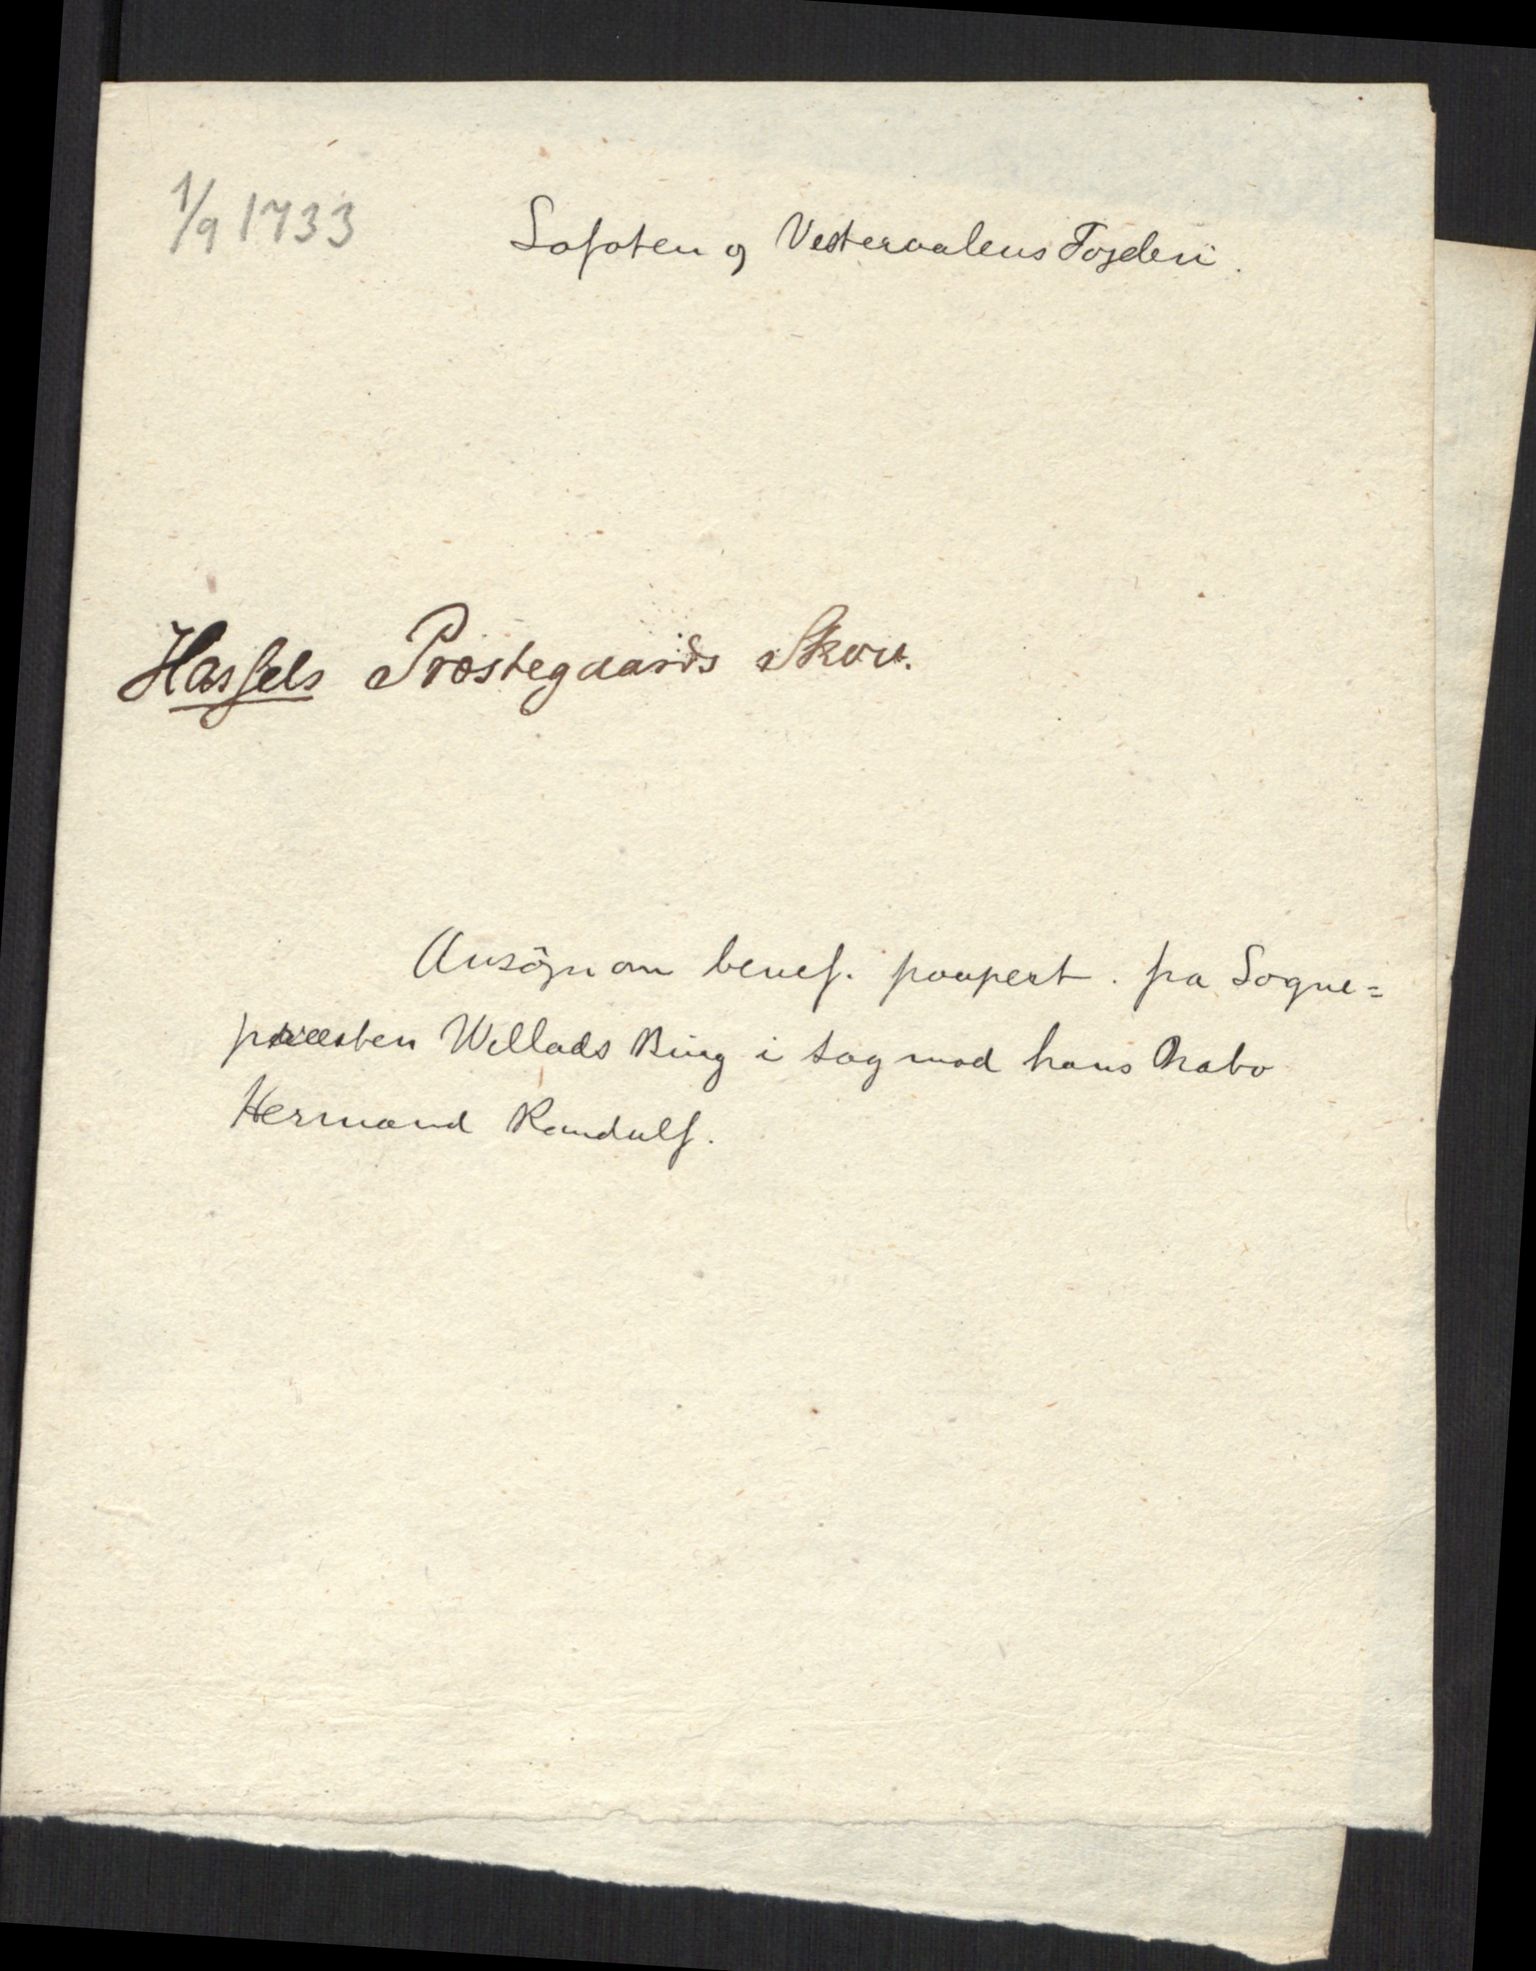 1/9 1733
Lofoten og Vesteraalens Fogderi.
Hassels Præstegaards Skov.
Ansøgn om benef. paupert. fra Sogne=
præsten Willads Bing i sag mod hans Nabo
Hermand Randulf.